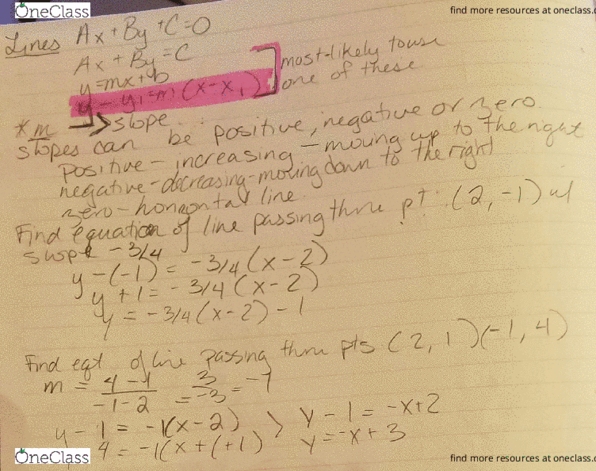 OneClass
find more resources at oneclass.c
Lines Ax + By + C = 0
Ax + By = C
y = mx + b
y - y1 = m (x - x1)
most-likely to use
one of these
* m → slope
slopes can be positive, negative or zero
positive - increasing - moving up to the right
negative - decreasing - moving down to the right
zero - horizontal line
Find equation of line passing thru pt. (2, -1) w/
slope -3/4
y - (-1) = -3/4 (x - 2)
y + 1 = -3/4 (x - 2)
y = -3/4 (x - 2) - 1
Find eqt of line passing thru pts (2, 1) (-1, 4)
m = 4 - 1 / -1 - 2 = 3 / -3 = -1
y - 1 = -1(x - 2) > y - 1 = -x + 2
4 = -1(x + (+1) y = -x + 3
OneClass
find more resources at oneclass.c